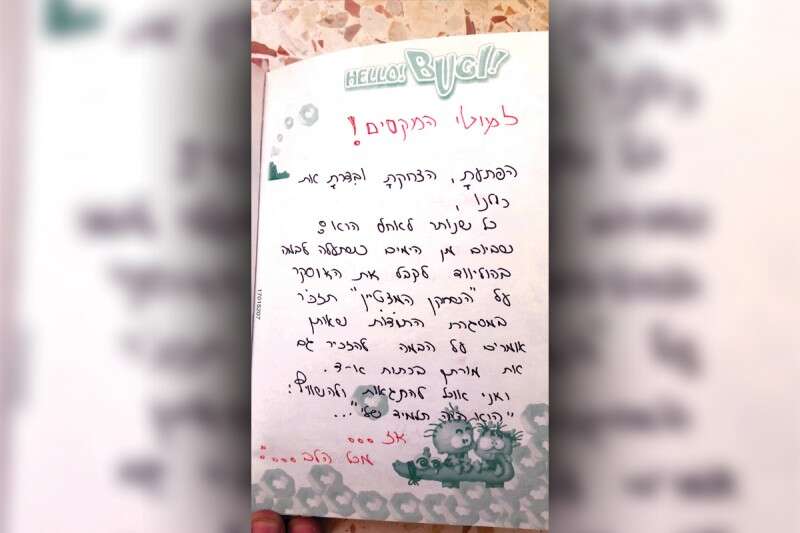 HELLO! BUGI!
למוטי המקסים!
הפתעת, הצחקת ובידרת את
כולנו,
כל שנותר לאחל הוא:
שביום מן הימים כשתעלה לבמה
בהוליווד לקבל את האוסקר
על "השחקן המצטיין" תזכר
במסגרת התודות שאותן
אומרים על הבמה להזכיר גם
את מורתך בכתות א-ד.
ואני אוכל להתגאות ולהשוויץ:
"הוא היה תלמיד שלי"...
אז ...
מכל הלב ...!
17015207